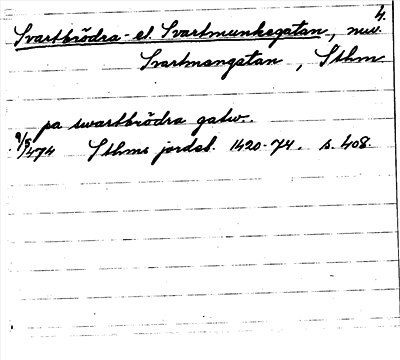 4.
Svartbrödra- el. Svartmunkegatan, nuv.
Svartmangatan, Sthm
pa swartbrödra gatw.
9/5 1474 Sthms jordeb. 1420-74. s. 408.